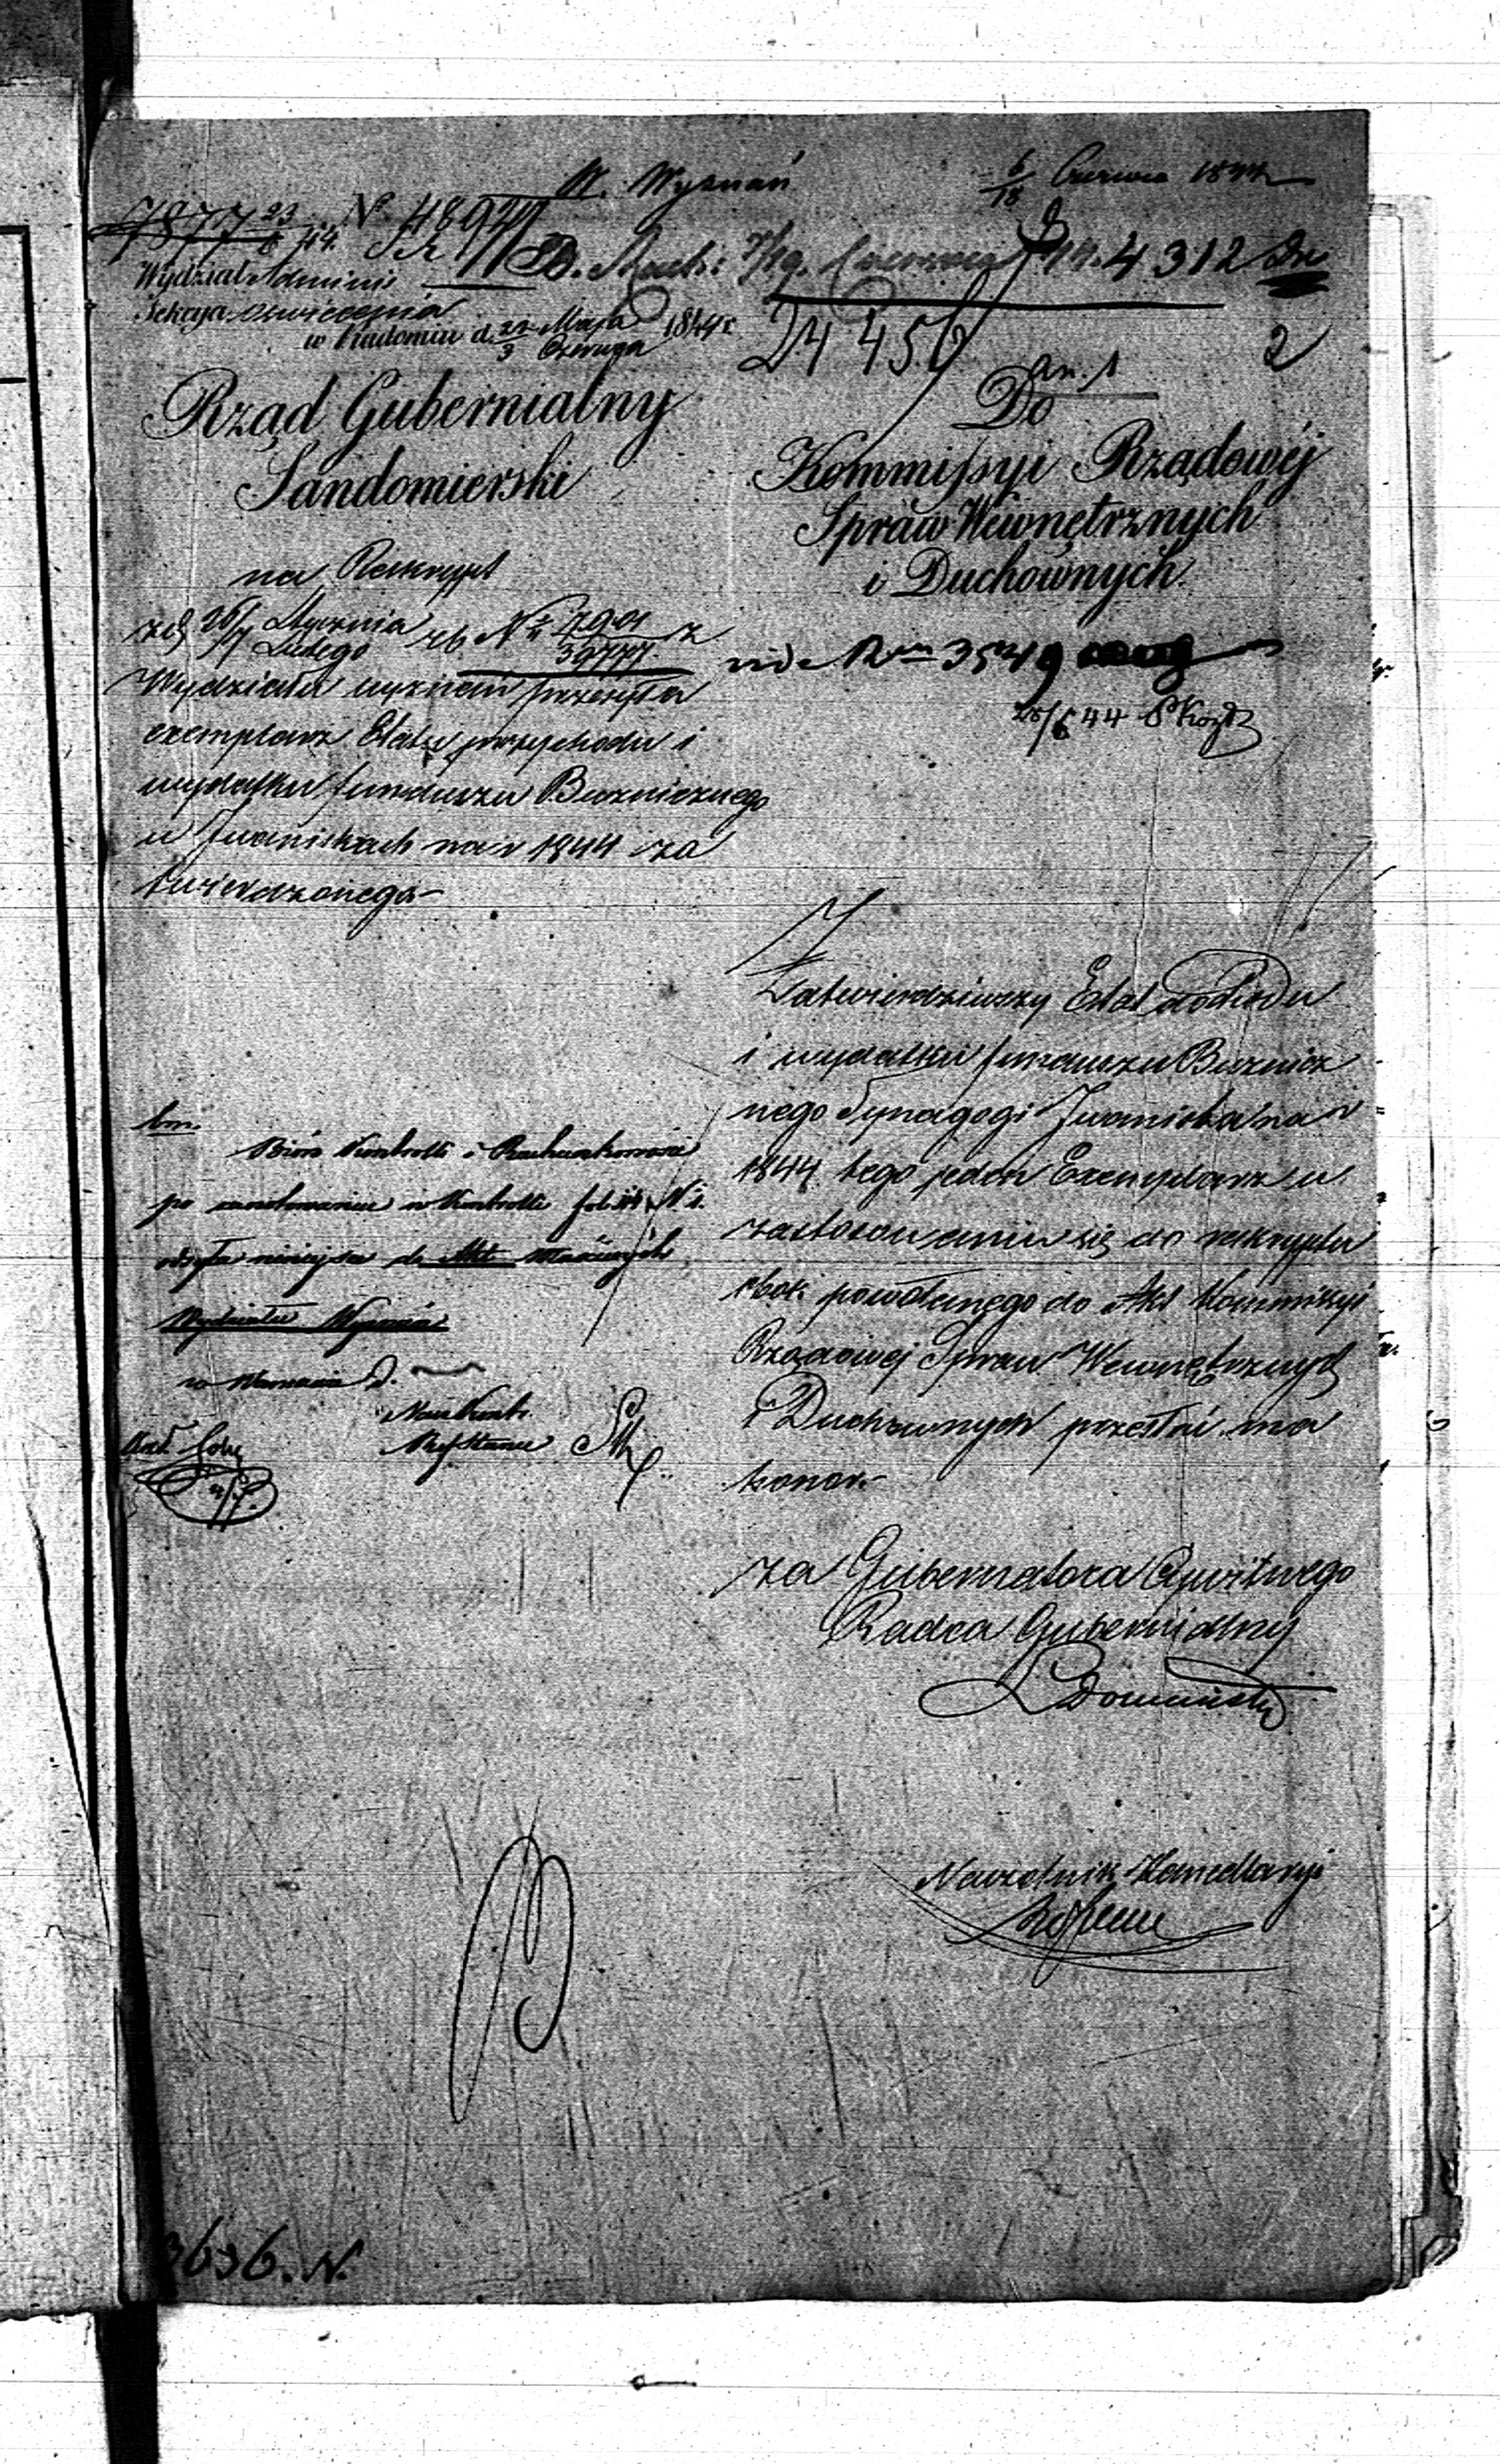 W. Wyznań
6/18 Czerwca 1844
7877 23/6 44.
N. 48920
Wydział Adminis
Sekcya Oswiecenia
w Radomiu d. 22/3 Maja/Czerwca 1844 r.
4312
24456
2
an. 1
Rząd Gubernialny
Sandomierski
Do
Kommissyi Rządowéj
Spraw Wewnętrznych
i Duchownych.
na Reskrypt
z d. 26/7 Stycznia/Lutego rb N. 1701/39777 z
Wydziału wyznań przesyła
exemplarz Etatu przychodu i
wydatku funduszu Bużniczego
w Iwaniskach na r 1844 za
twierdzonego
vide 3549
28/6 44
Zatwierdziwszy Etat dochodu
i wydatku funduszu Bużnicz
nego Synagogi Iwaniska na r
1844 tego jeden Exemplarz w
zastosowaniu się do reskryptu
obok powołanego do Akt Kommissyi
Rządowej Spraw Wewnętrznych
i Duchownych przesłać ma
honor.
bm.
Bióro Kontrolli i Rachunkowości
po zanotowaniu w Kontrolli fol. N.
odsyła niniejsze do Akt właściwych
Wydziału Wyznań
w Warszawie d.
Nacz Kontr.
za Gubernatora Cywilnego
Radca Gubernialny
L Domański
Naczelnik Kancellaryi
3636. N.